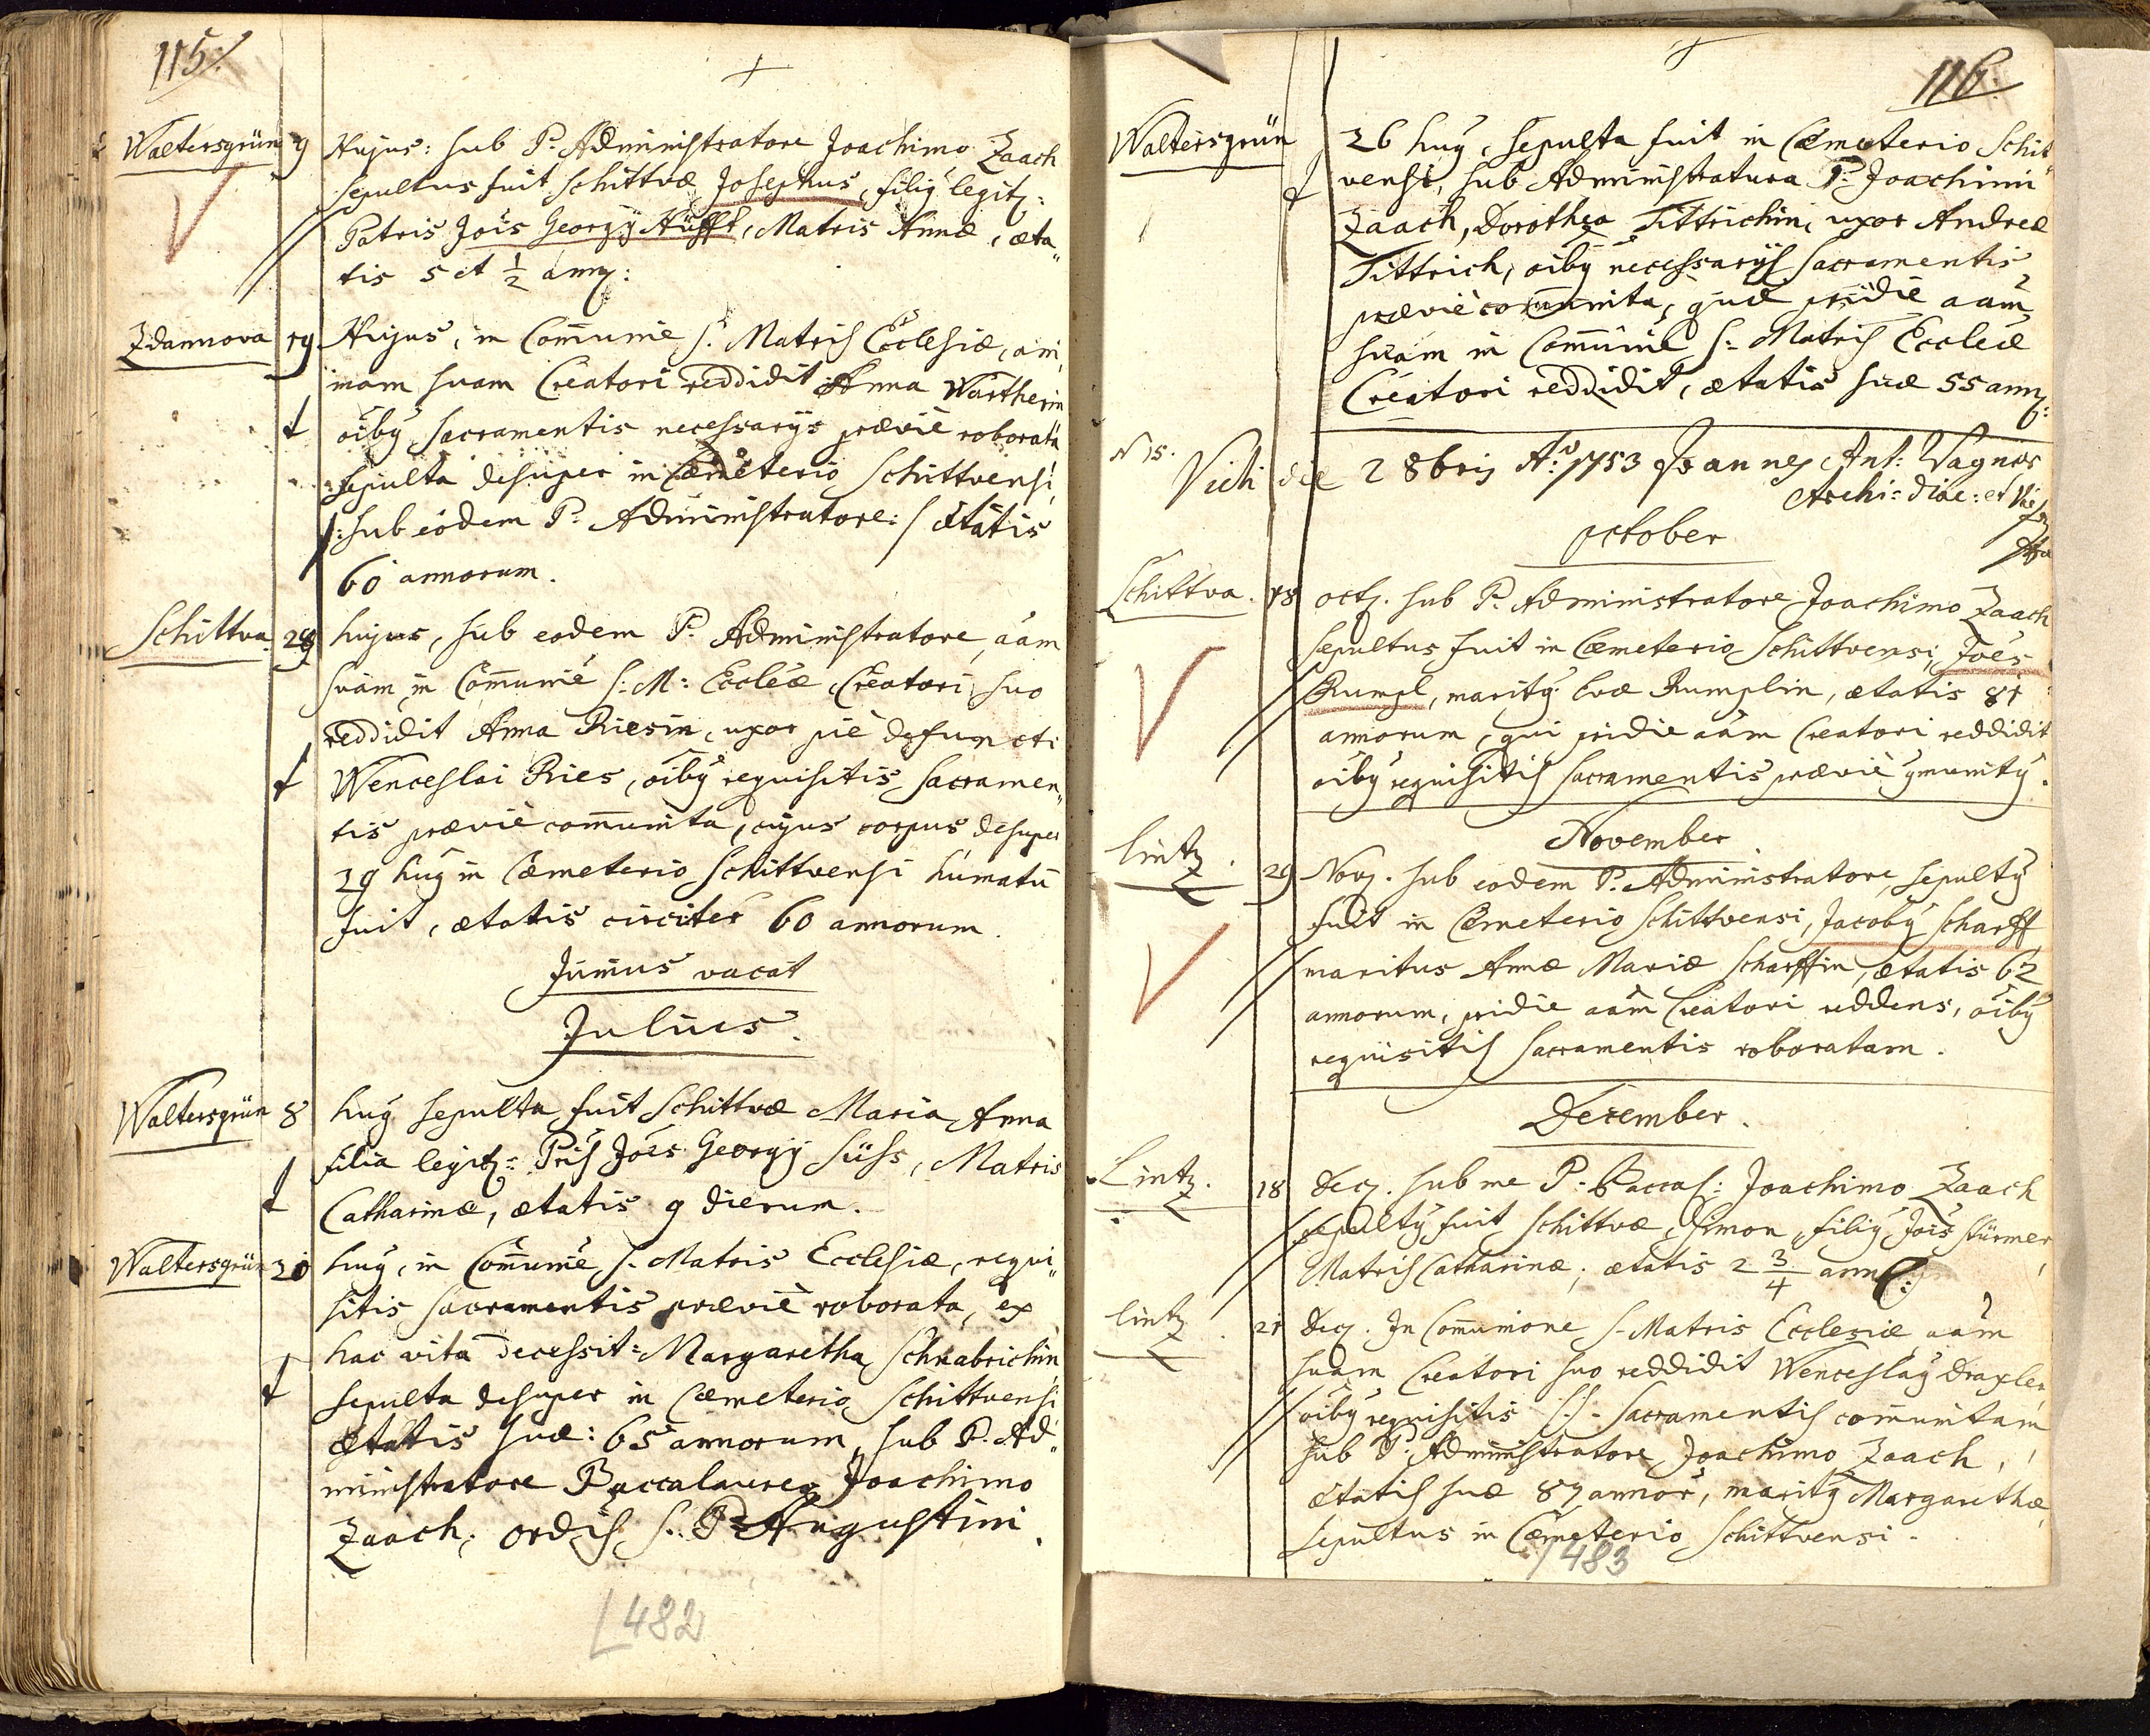 115.
Waltersgrün 9 Hujus: sub P. Administratore Joachimo Zaach
sepultus fuit Schittvæ Josephus, filiy legitz:
Patris Jois Georgy Küfft, Matris Annæ, æta„
tis 5 et 1/2 annz:
Zdannova 19 Hujus, in Commune S. Matris Ecclesiæ, ani
mam suam Creatori reddidit Anna Wartherin
oiby Sacramentis necessarys prævie roborata
sepulta desuper in Cæmeterio Schittvensi
/:sub eodem P. Administratore:/ ætatis
60 annorum.
Schittva. 29 hujus, sub eodem P. Administratore, aam
suam in Commune S: M: Eccleæ Creatori suo
reddidit Anna Riesin, uxor pie defuncti
Wenceslai Ries, oiby requisitis Sacramen„
tis prævie communita, cujus corpus desuper
29 huy in Cæmeterio Schittvensi humatu
fuit, ætatis circiter 60 annorum.
Junius vacat
Julius.
Waltersgrün 8 huy sepulta fuit Schittvæ Maria Anna
filia legitz: Pris Jois Georgy Süss, Matris
Catharinæ, ætatis 9 dierum.
Waltersgrün 20 huy, in Commune S. Matris Ecclesiæ, requi„
sitis sacramentis prævie roborata, ex
hac vita decessit: Margaretha Schnabrichin
sepulta desuper in Cæmeterio Schittvensi
ætatis suæ: 65 annorum, sub P. Ad„
ministratore Baccalaureo Joachimo
Zaach, ordis S. P. Augustini.
482
116.
Waltersgrün 26 huy, sepulta fuit in Cæmeterio Schit„
vensi, sub Administratura P. Joachimi
Zaach, Dorothea Tittrichin, uxor Andreæ
Tittrich, oiby necessarys Sacramentis
prævie communita, quæ pridie aam
suam in Commune S: Matris Eccleæ
Creatori reddidit, ætatis suæ 55 annz:
N 15.
Vidi die 2 8bris Ao: 1753 Joannes Ant: Vagner
Archi: diac: et
October
Schittva. 18 octz. sub P. Administratore Joachimo Zaach
sepultus fuit in Cæmeterio Schittvensi, Joes
Rumpl, marity Evæ Rumplin, ætatis 81
annorum, qui pridie aam Creatori reddidit
oiby requisitis Sacramentis prævie ymunity.
November
Lintz. 29 Novz. sub eodem P. Administratore, sepulty
fuit in Cæmeterio Schittvensi, Jacoby Scharff
maritus Annæ Mariæ Scharffin, ætatis 62
annorum, pridie aam Creatori reddens, oiby
requisitis Sacramentis roboratam.
December.
Lintz. 18 decz. sub me P. Baccal: Joachimo Zaach
sepulty fuit Schittvæ Simon, filiy Jois Stürmer
Matris Catharinæ, ætatis 2 3/4 ann:
Lintz. 21 decz. In Communione S. Matris Ecclesiæ aam
suam Creatori suo reddidit Wenceslay Draxler,
oiby requisitis S.S. Sacramentis communitam
sub P. Administratore Joachimo Zaach,
ætatis suæ 87 annor, marity Margarethæ,
sepultus in Cæmeterio Schittvensi.
483